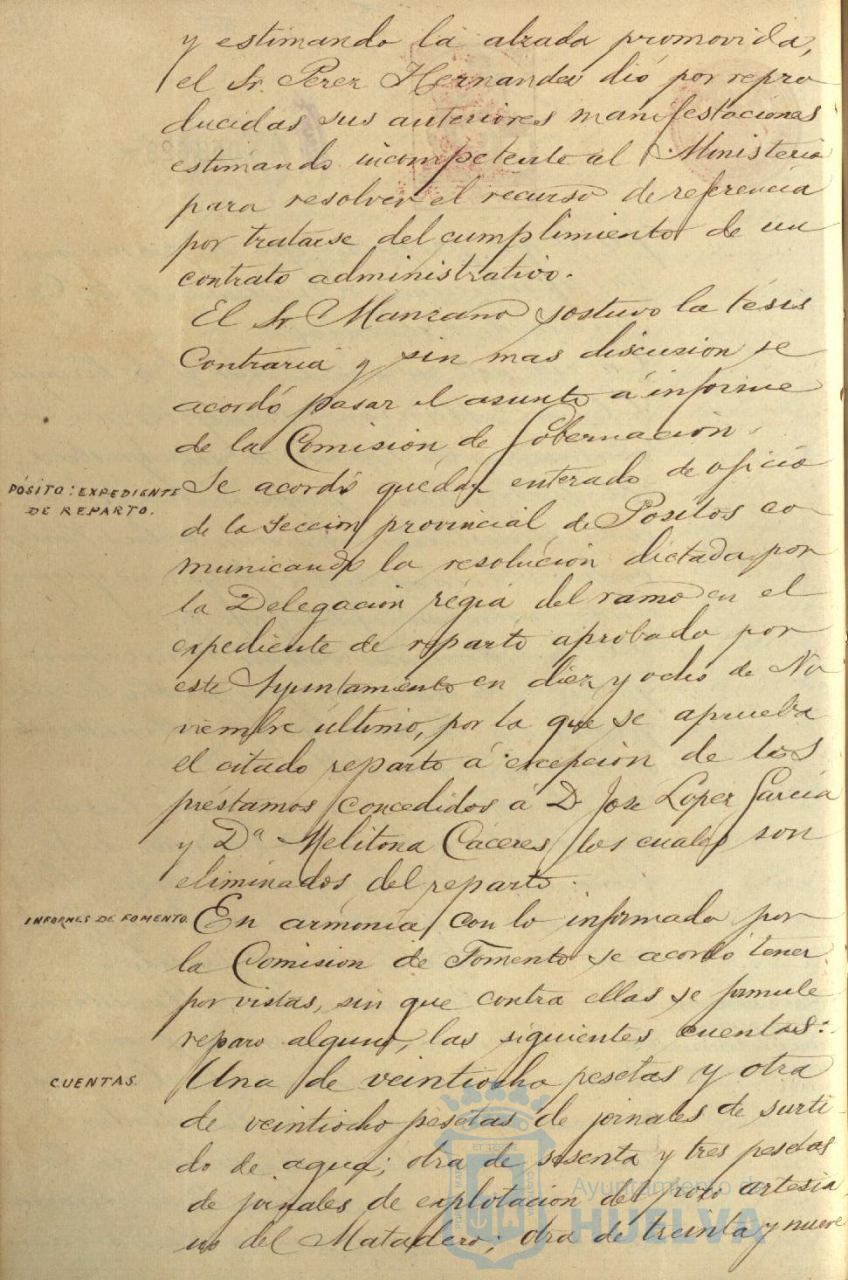 y estimando la alzada promovida,
el Sr. Perez Hernandez dió por repro
ducidas sus anteriores manifestaciones
estimando incompetente al Ministerio
para resolver el recurso de referencia
por tratarse del cumplimiento de un
contrato administrativo.
El Sr Manzano sostuvo la tésis
Contraria y sin mas discusion se
acordó pasar el asunto á informe
de la Comisión de Gobernación.
PÓSITO: EXPEDIENTE
DE REPARTO.
Se acordó quedar enterado de oficio
de la Sección provincial de Positos co
municando la resolución dictada por
la Delegación régia del ramo en el
expediente de reparto aprobado por
este Ayuntamiento en diez y ocho de No
viembre último, por la que se aprueba
el citado reparto á excepción de los
préstamos concedidos á D. José Lopez García
y Dª Melitona Cáceres los cuales son
eliminados del reparto.
INFORMES DE FOMENTO.
En armonía con lo informado por
la Comision de Fomento se acordó tener
por vistas, sin que contra ellas se formule
reparo alguno, las siguientes cuentas:
CUENTAS.
Una de veintiocho pesetas y otra
de veintiocho pesetas de jornales de surti
do de agua; otra de sesenta y tres pesetas
de jornales de explotación del pozo artesia
no del Matadero; otra de treinta y nueve
Ayuntamiento de
HUELVA